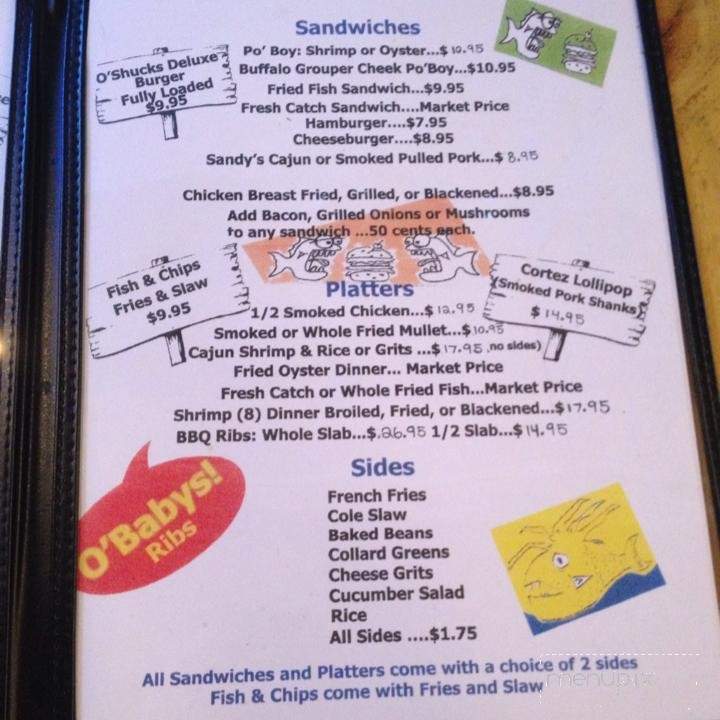 Sandwiches
O'Shucks Deluxe
Burger
Fully Loaded
$9.95
Po' Boy: Shrimp or Oyster...$ 10.95
Buffalo Grouper Cheek Po'Boy...$10.95
Fried Fish Sandwich...$9.95
Fresh Catch Sandwich....Market Price
Hamburger....$7.95
Cheeseburger....$8.95
Sandy's Cajun or Smoked Pulled Pork...$ 8.95
Chicken Breast Fried, Grilled, or Blackened...$8.95
Add Bacon, Grilled Onions or Mushrooms
to any sandwich ...50 cents each.
Fish & Chips
Fries & Slaw
$9.95
Cortez Lollipop
(Smoked Pork Shanks)
$ 14.95
Platters
1/2 Smoked Chicken...$ 12.95
Smoked or Whole Fried Mullet...$ 10.95
Cajun Shrimp & Rice or Grits ...$ 17.95 ,no sides)
Fried Oyster Dinner... Market Price
Fresh Catch or Whole Fried Fish...Market Price
Shrimp (8) Dinner Broiled, Fried, or Blackened...$17.95
BBQ Ribs: Whole Slab...$.26.95 1/2 Slab...$ 14.95
O'Babys!
Ribs
Sides
French Fries
Cole Slaw
Baked Beans
Collard Greens
Cheese Grits
Cucumber Salad
Rice
All Sides ....$1.75
All Sandwiches and Platters come with a choice of 2 sides
Fish & Chips come with Fries and Slaw